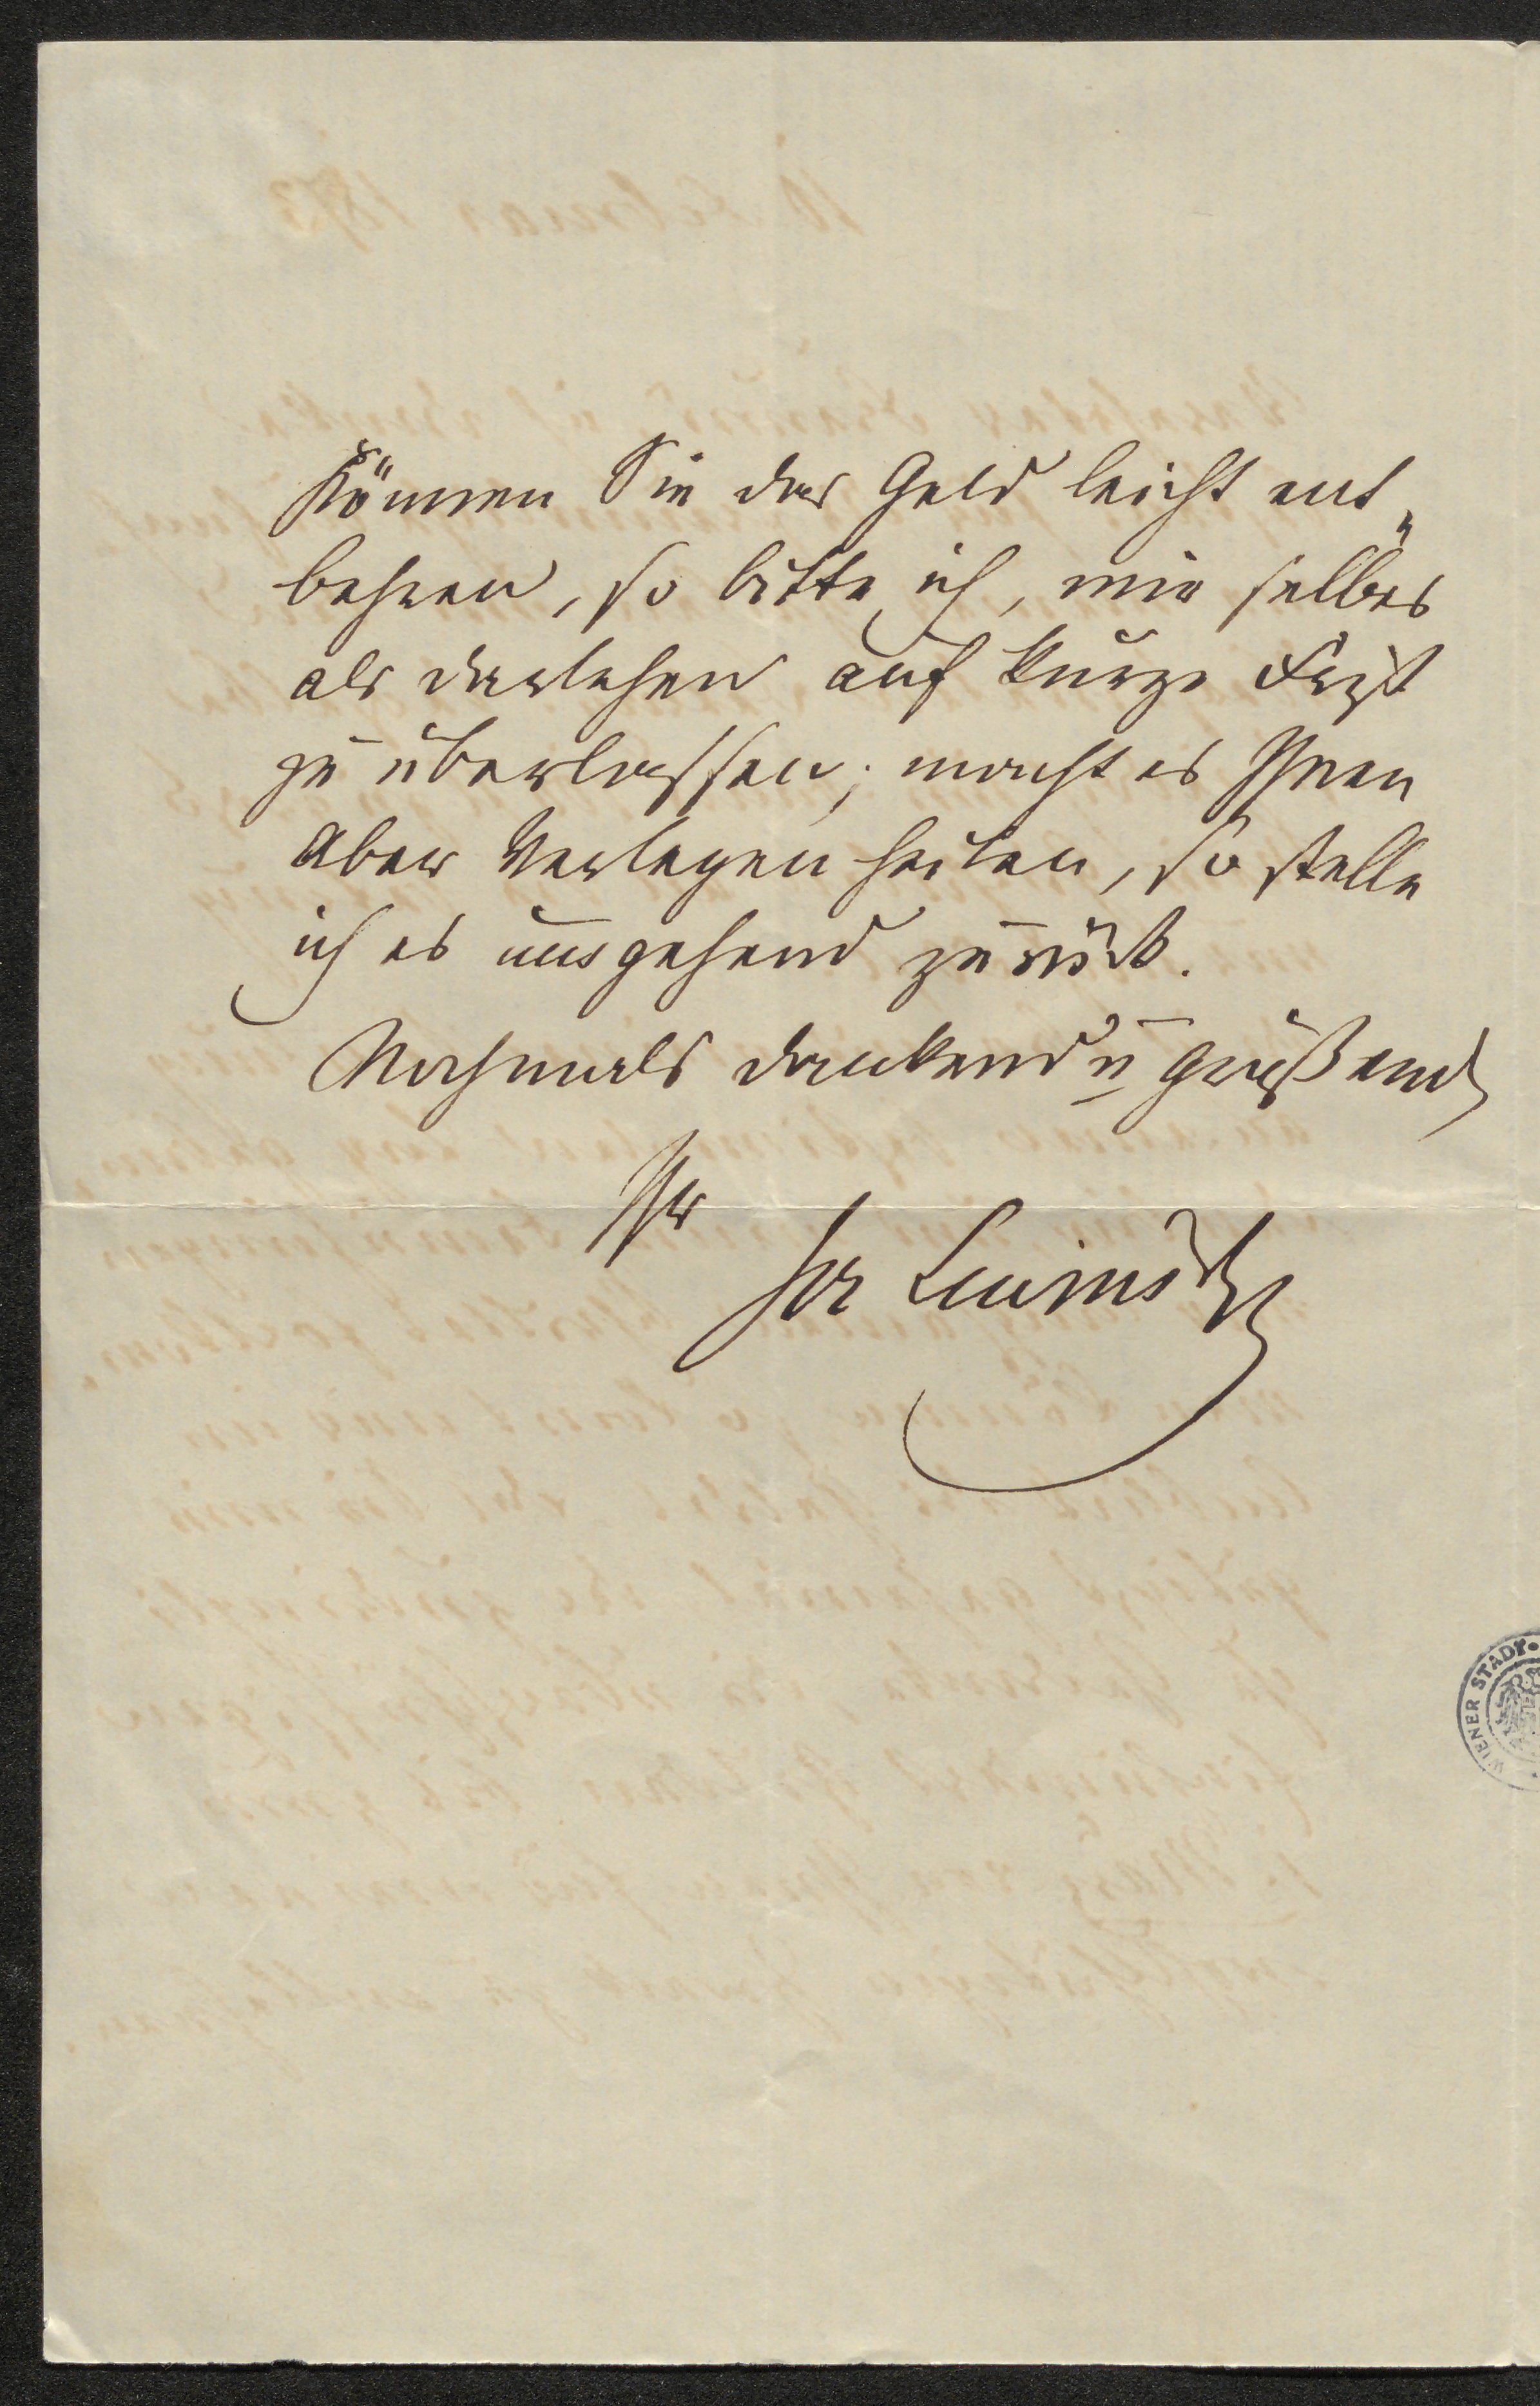 Können Sie das Geld leicht ent„
behren, so bitte ich, mir selbes
als Darlehen auf kurze Frist
zu überlassen; macht es Ihnen
aber Verlegenheiten, so stelle
ich es umgehend zurück.
Nochmals dankend u grüßend
Ihr
Jos Lewinsky
WIENER STADT